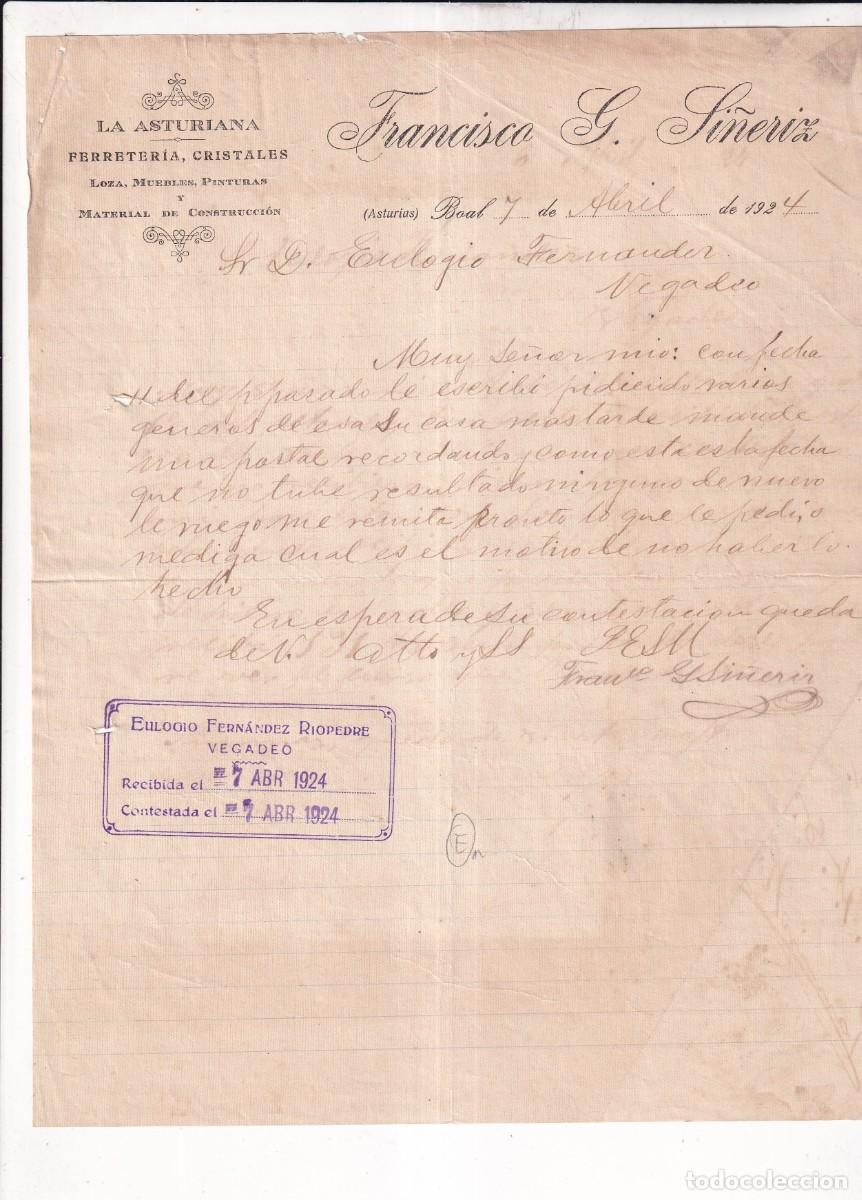 LA ASTURIANA
FERRETERÍA, CRISTALES
LOZA, MUEBLES, PINTURAS
Y
MATERIAL DE CONSTRUCCIÓN
Francisco G. Siñeriz
(Asturias) Boal 7 de Abril de 1924
Sr D. Eulogio Fernandez.
Vegadeo
Muy Señor mio: con fecha
11 del p pasado le escribi pidiendo varios
generos de esa su casa mas tarde mande
una postal recordando y como esta es la fecha
que no tube resultado ninguno de nuevo
le ruego me remita pronto lo que le pedi, o
me diga cual es el motivo de no haberlo
hecho
En espera de su contestacion queda
de V. atto y SS
Franco G Siñeriz
EULOGIO FERNÁNDEZ RIOPEDRE
VEGADEO
Recibida el 7 ABR 1924
Contestada el 7 ABR 1924
E
todocoleccion